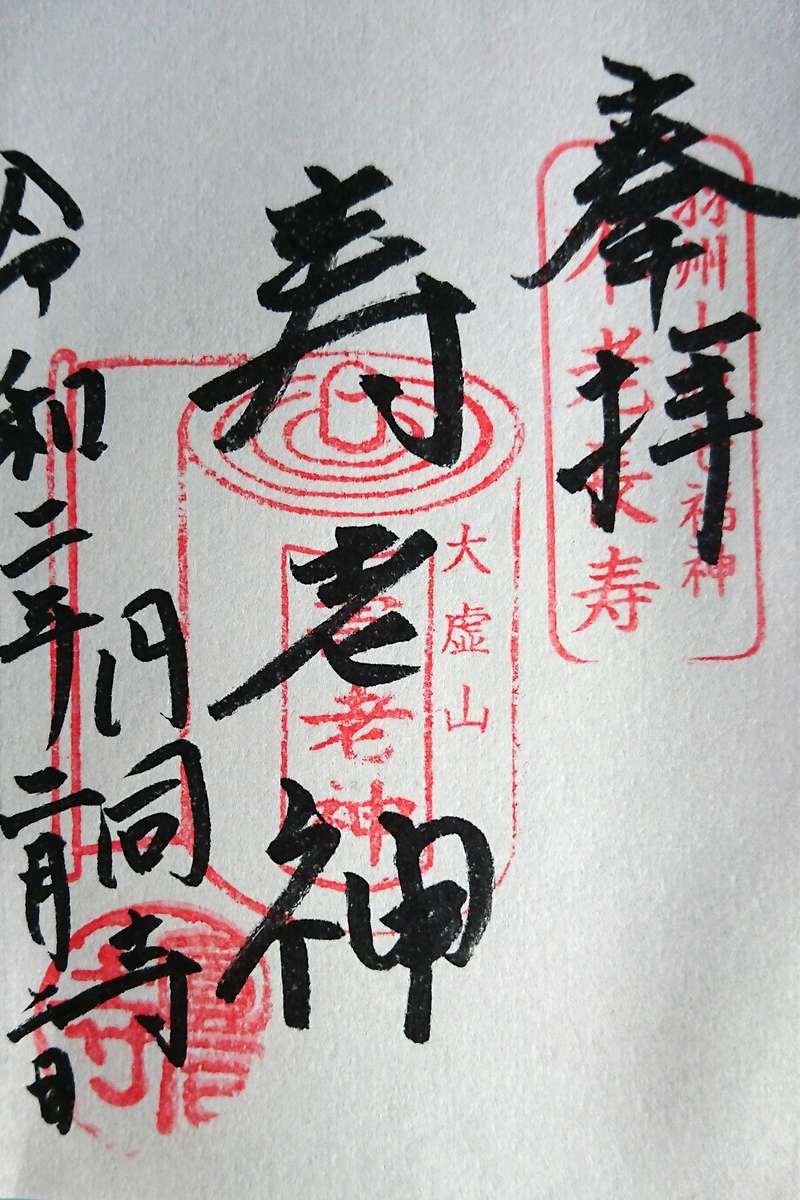 奉拝
羽州山形七福神
不老長寿
寿老神
大虚山
寿老神
円同寺
令和二年二月二日